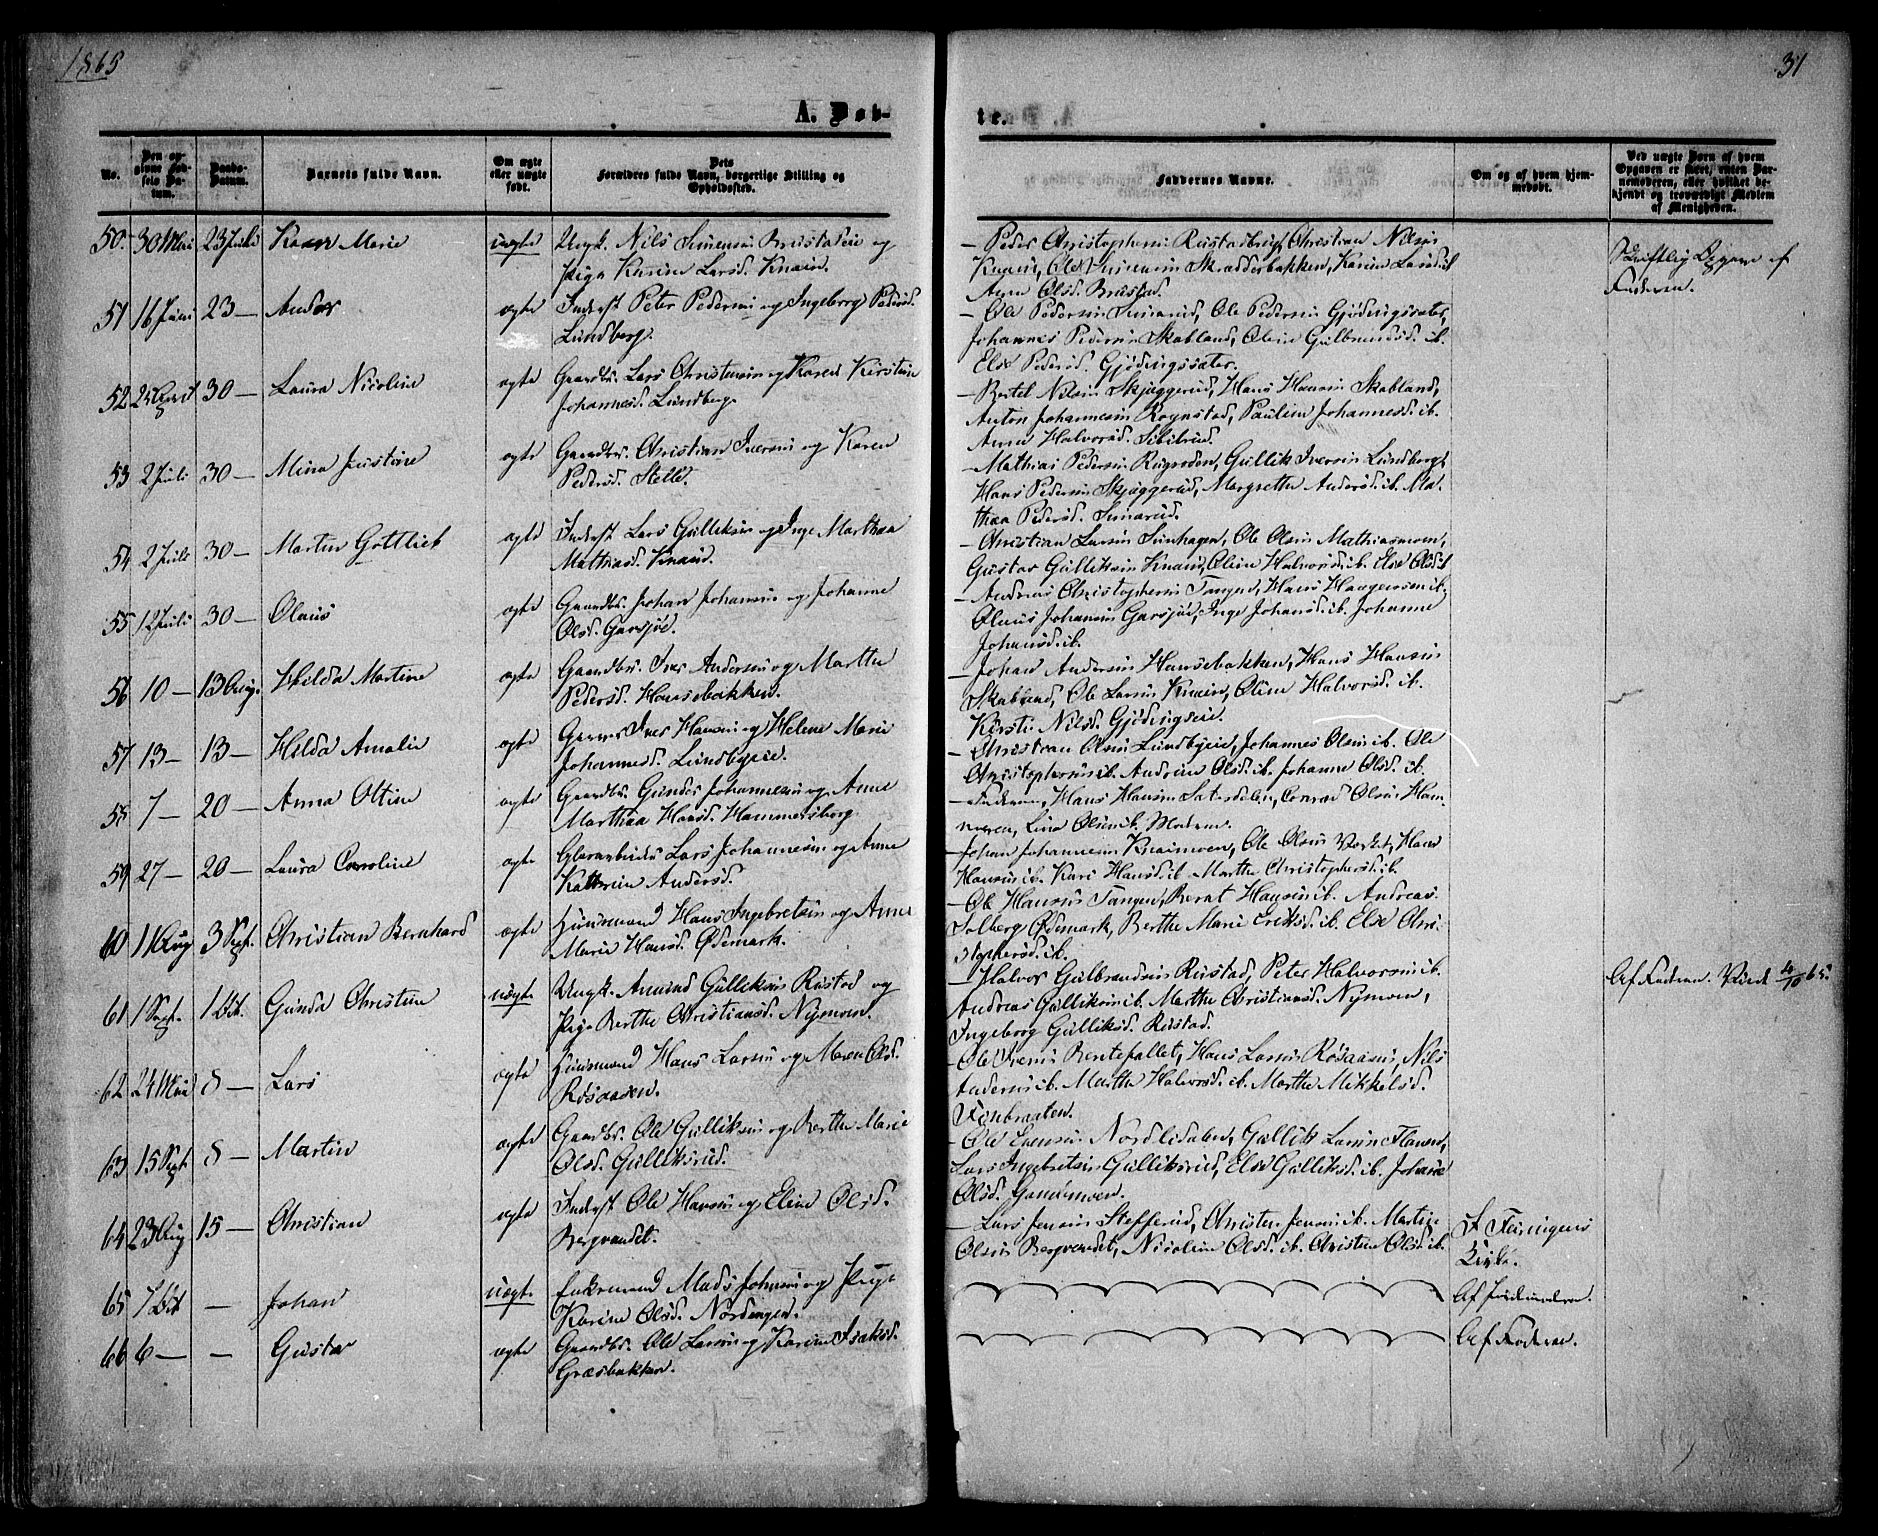 1865
31
A. Døb-
te.
No.
Den op-
givne Fød-
sels Da-
tum.
Daabs-
Datum.
Barnets fulde Navn.
Om ægte
eller uægte
født.
Dets
Forældres fulde Navn, borgerlige Stilling og
Opholdssted.
Faddernes Navne.
Om og af hvem hjem-
medøbt.
Ved uægte Børn af hvem
Opgaven er skeet, enten Bar-
nemoderen, eller hvilket be-
kjendt og troværdigt Medlem
af Menigheden.
50. 30 Mai 23 Juli Karen Marie uægte Ungk. Nils Simensen Brustadeie og
Pige Karine Larsd. Knain.
– Peder Christophersen Rustadbrug, Christian Nilsen
Knain, Ole Simensen Skrædderbakken, Karen Larsd. ib.
Anne Olsd. Brustad.
Skriftlig Opgave af
Faderen.
51 16 Juni 23 – Anders ægte Inderst Peter Pedersen og Ingeborg Pedersd.
Lundberg.
– Ole Pedersen Simarud, Ole Pedersen Gjødingsæter,
Johannes Pedersen Skabland, Oline Gulbrandsd. ib.
Else Pedersd. Gjødingssæter.
52 25 April 30 – Laura Nicoline ægte Gaardbr. Lars Christensen og Karen Kirstine
Johannesd. Lundberg.
– Bertel Nilsen Skjæggerud, Hans Hansen Skabland,
Anton Johannesen Rognstad, Pauline Johannesd. ib.
Anne Halvorsd. Sibilrud.
53 2 Juli 30 – Mina Justine ægte Gaardbr. Christian Iversen og Karen
Pedersd. Stelle.
– Mathias Pedersen Rugroden, Gullik Iversen Lundberg,
Hans Pedersen Skjæggerud, Margrethe Andersd. ib. Ma-
thea Pedersd. Simarud.
54 2 Juli 30 – Martin Gottlieb ægte Inderst Lars Gulliksen og Inge Marthea
Mathiasd. Knain.
– Christian Larsen Simhagen, Ole Olsen Mathiasmoen,
Gustav Gulliksen Knain, Oline Halvorsd. ib. Else Olsd. ib.
55 12 Juli 30 – Olaus ægte Gaardbr. Johan Johansen og Johanne
Olsd. Garsjøe.
– Andreas Christophersen Tangen, Hans Haagensen ib.
Olaus Johansen Garsjøe, Inge Johansd. ib. Johanne
Johansd. ib.
56 10 – 13 Aug. Hilda Martine ægte Gaardbr. Iver Andersen og Marthe
Pedersd. Hansebakken.
– Johan Andersen Hansebakken, Hans Hansen
Skabland, Ole Larsen Knain, Oline Halvorsd. ib.
Kirsti Nilsd. Gjødingseie.
57 13 – 13 – Hilda Amalie ægte Garver Iver Hansen og Helene Marie
Johannesd. Lundbyeie.
– Christian Olsen Lundbyeie, Johannes Olsen ib. Ole
Christophersen ib. Andrine Olsd. ib. Johanne Olsd. ib.
58 7 – 20 – Anna Ottine ægte Gaardbr. Gunder Johannesen og Anne
Marthea Hansd. Hammersborg.
– Faderen, Hans Hansen Satersdalen, Conrad Olsen Ham-
meren, Lina Olsen ib. Moderen.
59 27 – 20 – Laura Caroline ægte Glasarbeider Lars Johannesen og Anne
Kathrine Andersd.
– Johan Johannesen Knaimoen, Ole Olsen Værket, Hans
Hansen ib. Kari Hansd. ib. Marthe Christophersd. ib.
60 11 Aug 3 Sept. Christian Bernhard ægte Huusmand Hans Ingebretsen og Anne
Marie Hansd. Ødemark.
– Ole Hansen Tangen, Bernt Hansen ib. Andreas
Solberg Ødemark, Berthe Marie Eriksd. ib. Else Chri-
stophersd. ib.
61 1 Sept. 1 Okt. Gunda Christine uægte Ungk. Amund Gulliksen Rustad og
Pige Berthe Christiansd. Nymoen.
– Halvor Gulbrandsen Rustad, Peter Halvorsen ib.
Andreas Gulliksen ib. Marthe Christiansd. Nymoen,
Ingeborg Gulliksd. Rustad.
Af Faderen. 4/10 65.
62 24 Mai 8 – Lars ægte Huusmand Hans Larsen og Maren Olsd.
Rosaasen.
– Ole Iversen Bentefallet, Hans Larsen Rosaasen, Nils
Andersen ib. Marthe Halvorsd. ib. Marthe Mikkelsd.
Finbraaten.
63 15 Sept. 8 – Martin ægte Gaardbr. Ole Gulliksen og Berthe Marie
Olsd. Gulliksrud.
– Ole Evensen Nordlidalen, Gullik Larsen Flaten,
Lars Ingebretsen Gulliksrud, Else Gulliksd. ib. Johanne
Olsd. Gandemoen.
64 23 Aug 15 – Christian ægte Inderst Ole Hansen og Eline Olsd.
Bergvandet.
– Lars Jensen Stefferud, Christen Jensen ib. Martin
Olsen Bergvandet, Nicoline Olsd. ib. Christine Olsd. ib.
65 7 Okt – Johan uægte Enkemand Mads Johnsen og Pige
Karine Olsd. Nordengen.
Af Jordmoderen.
66 6 – – Gustav ægte Gaardbr. Ole Larsen og Karine Isaksd.
Græsbakken.
Af Faderen.